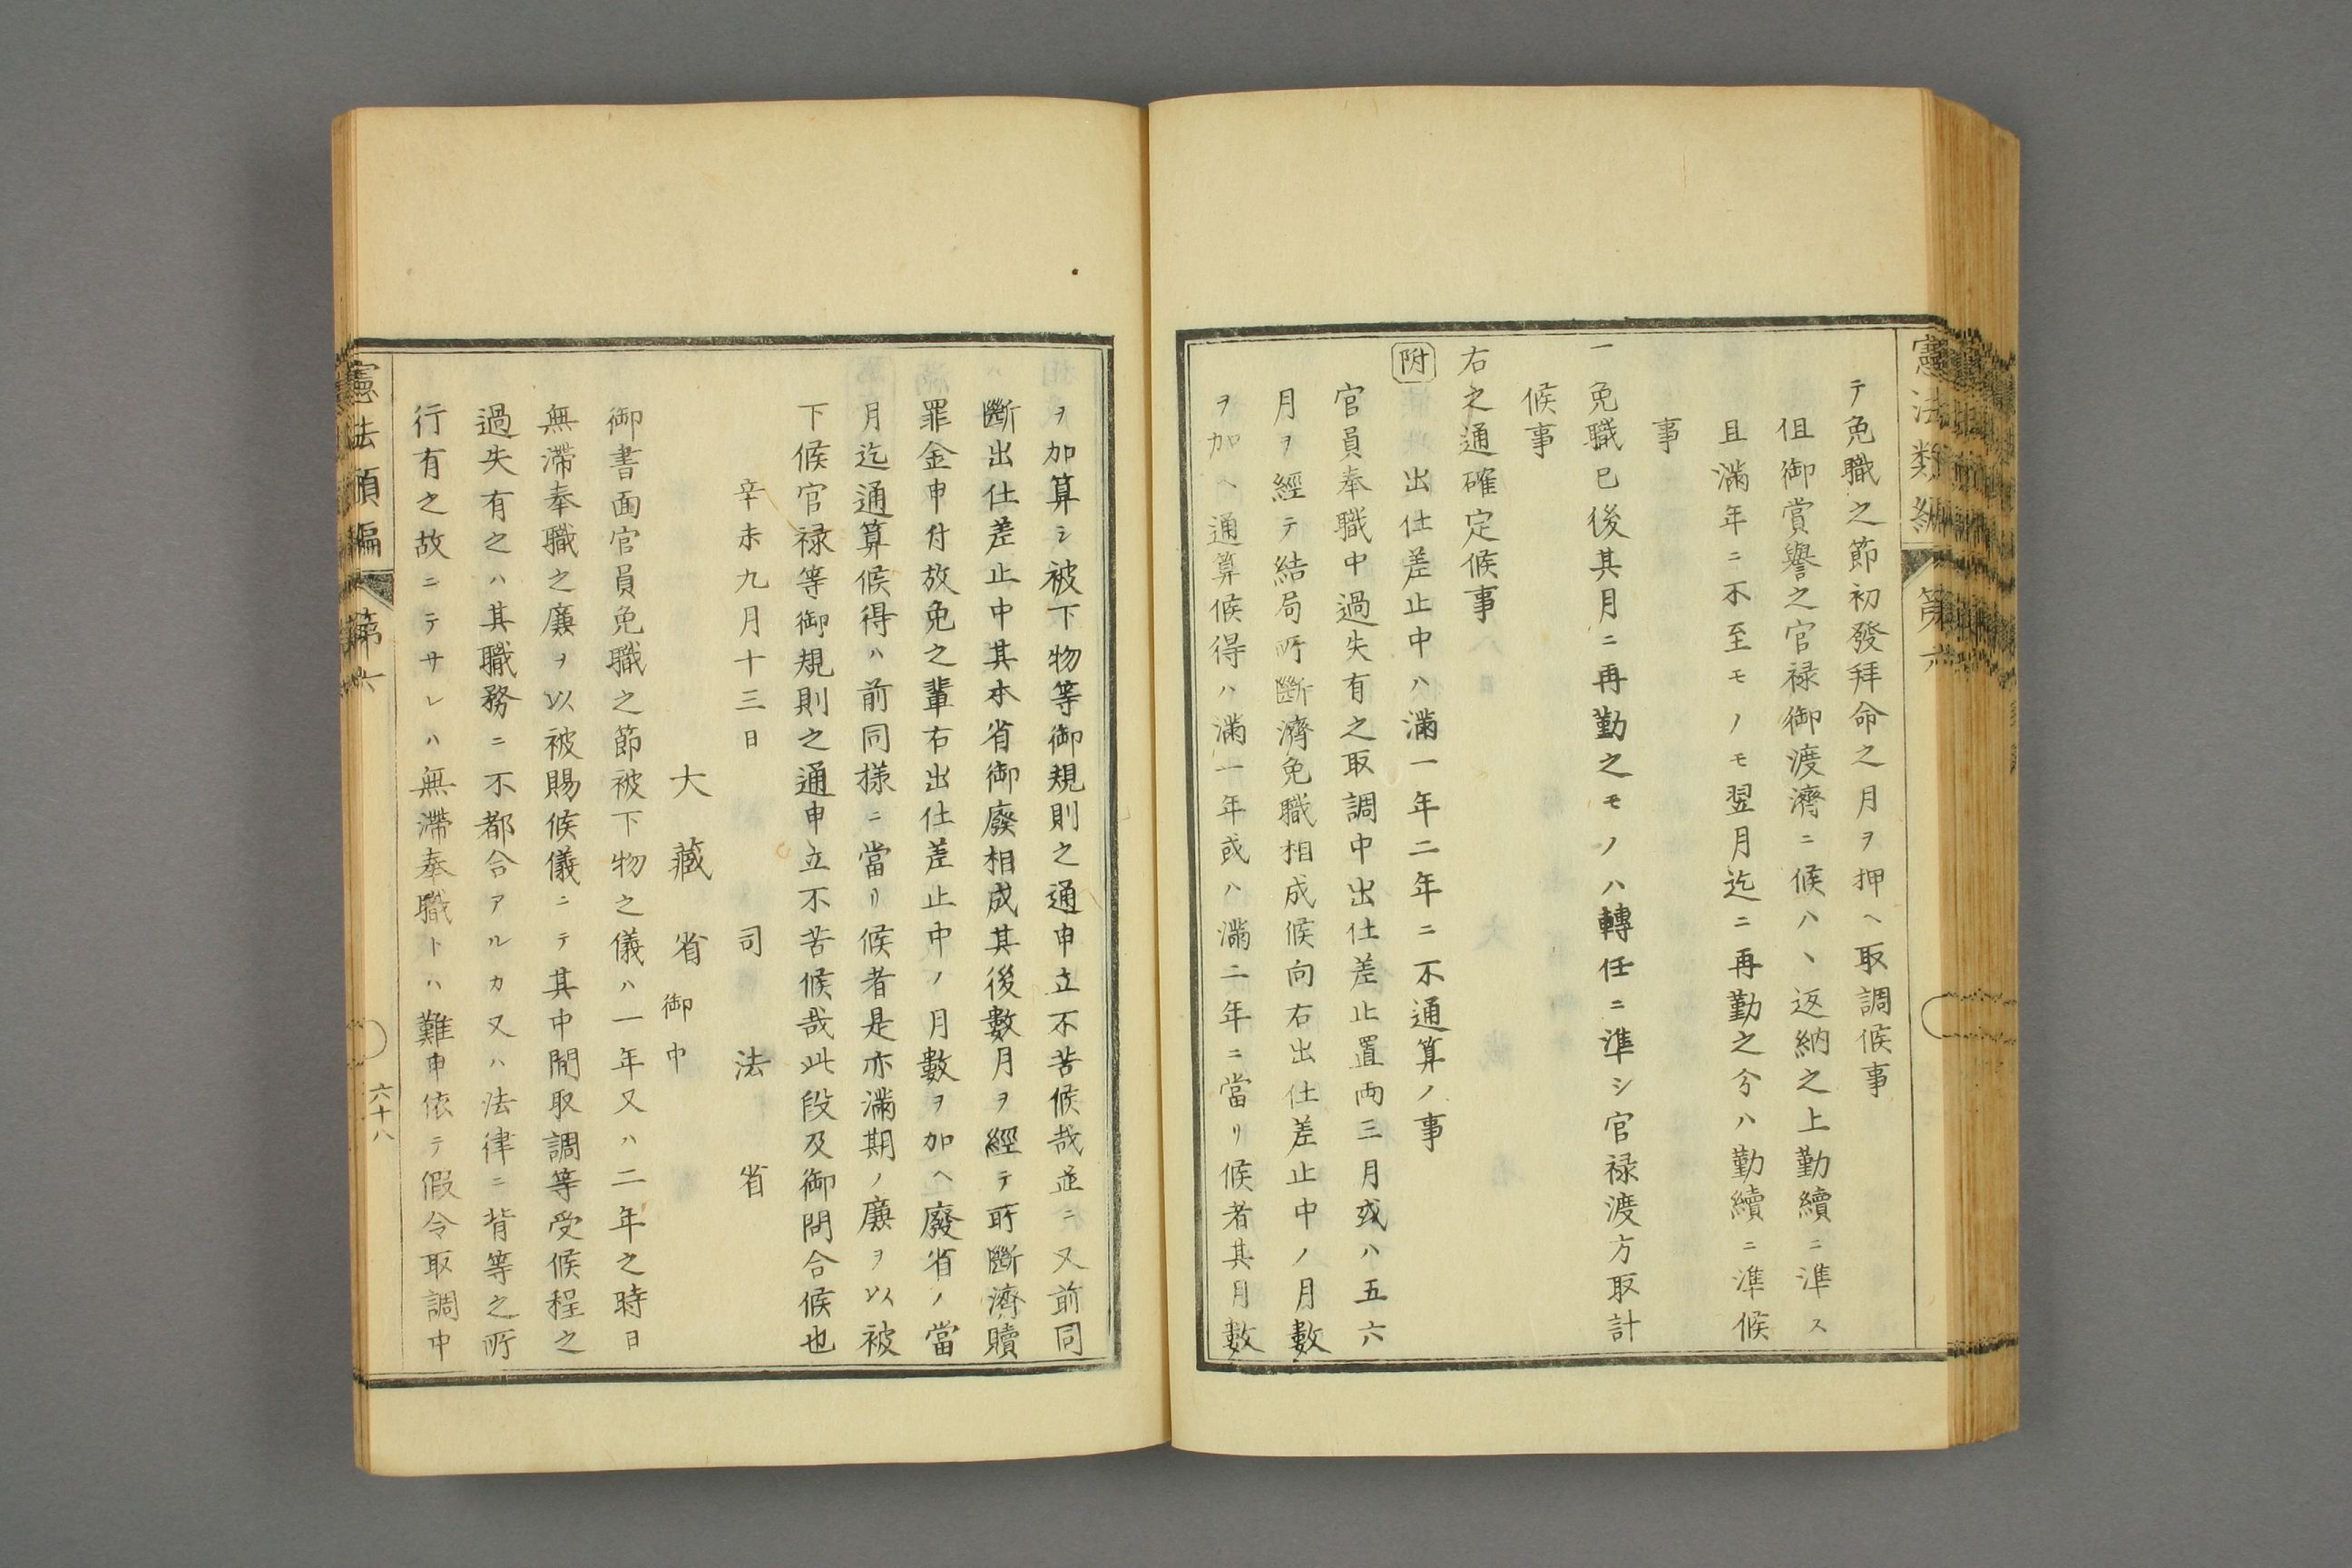 憲法類編 第六
テ免職之節初發拜命之月ヲ押ヘ取調候事
伹御賞譽之官禄御渡濟ニ候ハヽ返納之上勤續ニ準ス
且滿年ニ不至モノモ翌月迄ニ再勤之分ハ勤續ニ準候
事
一免職已後其月ニ再勤之モノハ轉任ニ準シ官禄渡方取計
候事
右之通確定候事
附 出仕差止中ハ滿一年二年ニ不通算ノ事
官員奉職中過失有之取調中出仕差止置両三月或ハ五六
月ヲ經テ結局所斷濟免職相成候向右出仕差止中ノ月數
ヲ加ヘ通算候得ハ滿一年或ハ滿二年ニ當リ候者其月數
ヲ加算シ被下物等御規則之通申立不苦候哉並ニ又前同
斷出仕差止中其本省御廢相成其後數月ヲ經テ所斷濟贖
罪金申付放免之輩右出仕差止中ノ月數ヲ加ヘ廢省ノ當
月迄通算候得ハ前同様ニ當リ候者是亦滿期ノ廉ヲ以被
下候官禄等御規則之通申立不苦候哉此段及御問合候也
辛未九月十三日 司法省
大藏省御中
御書面官員免職之節被下物之儀ハ一年又ハ二年之時日
無滯奉職之廉ヲ以被賜候儀ニテ其中間取調等受候程之
過失有之ハ其職務ニ不都合アルカ又ハ法律ニ背等之所
行有之故ニテサレハ無滯奉職トハ難申依テ假令取調中
憲法類編 第六
六十八